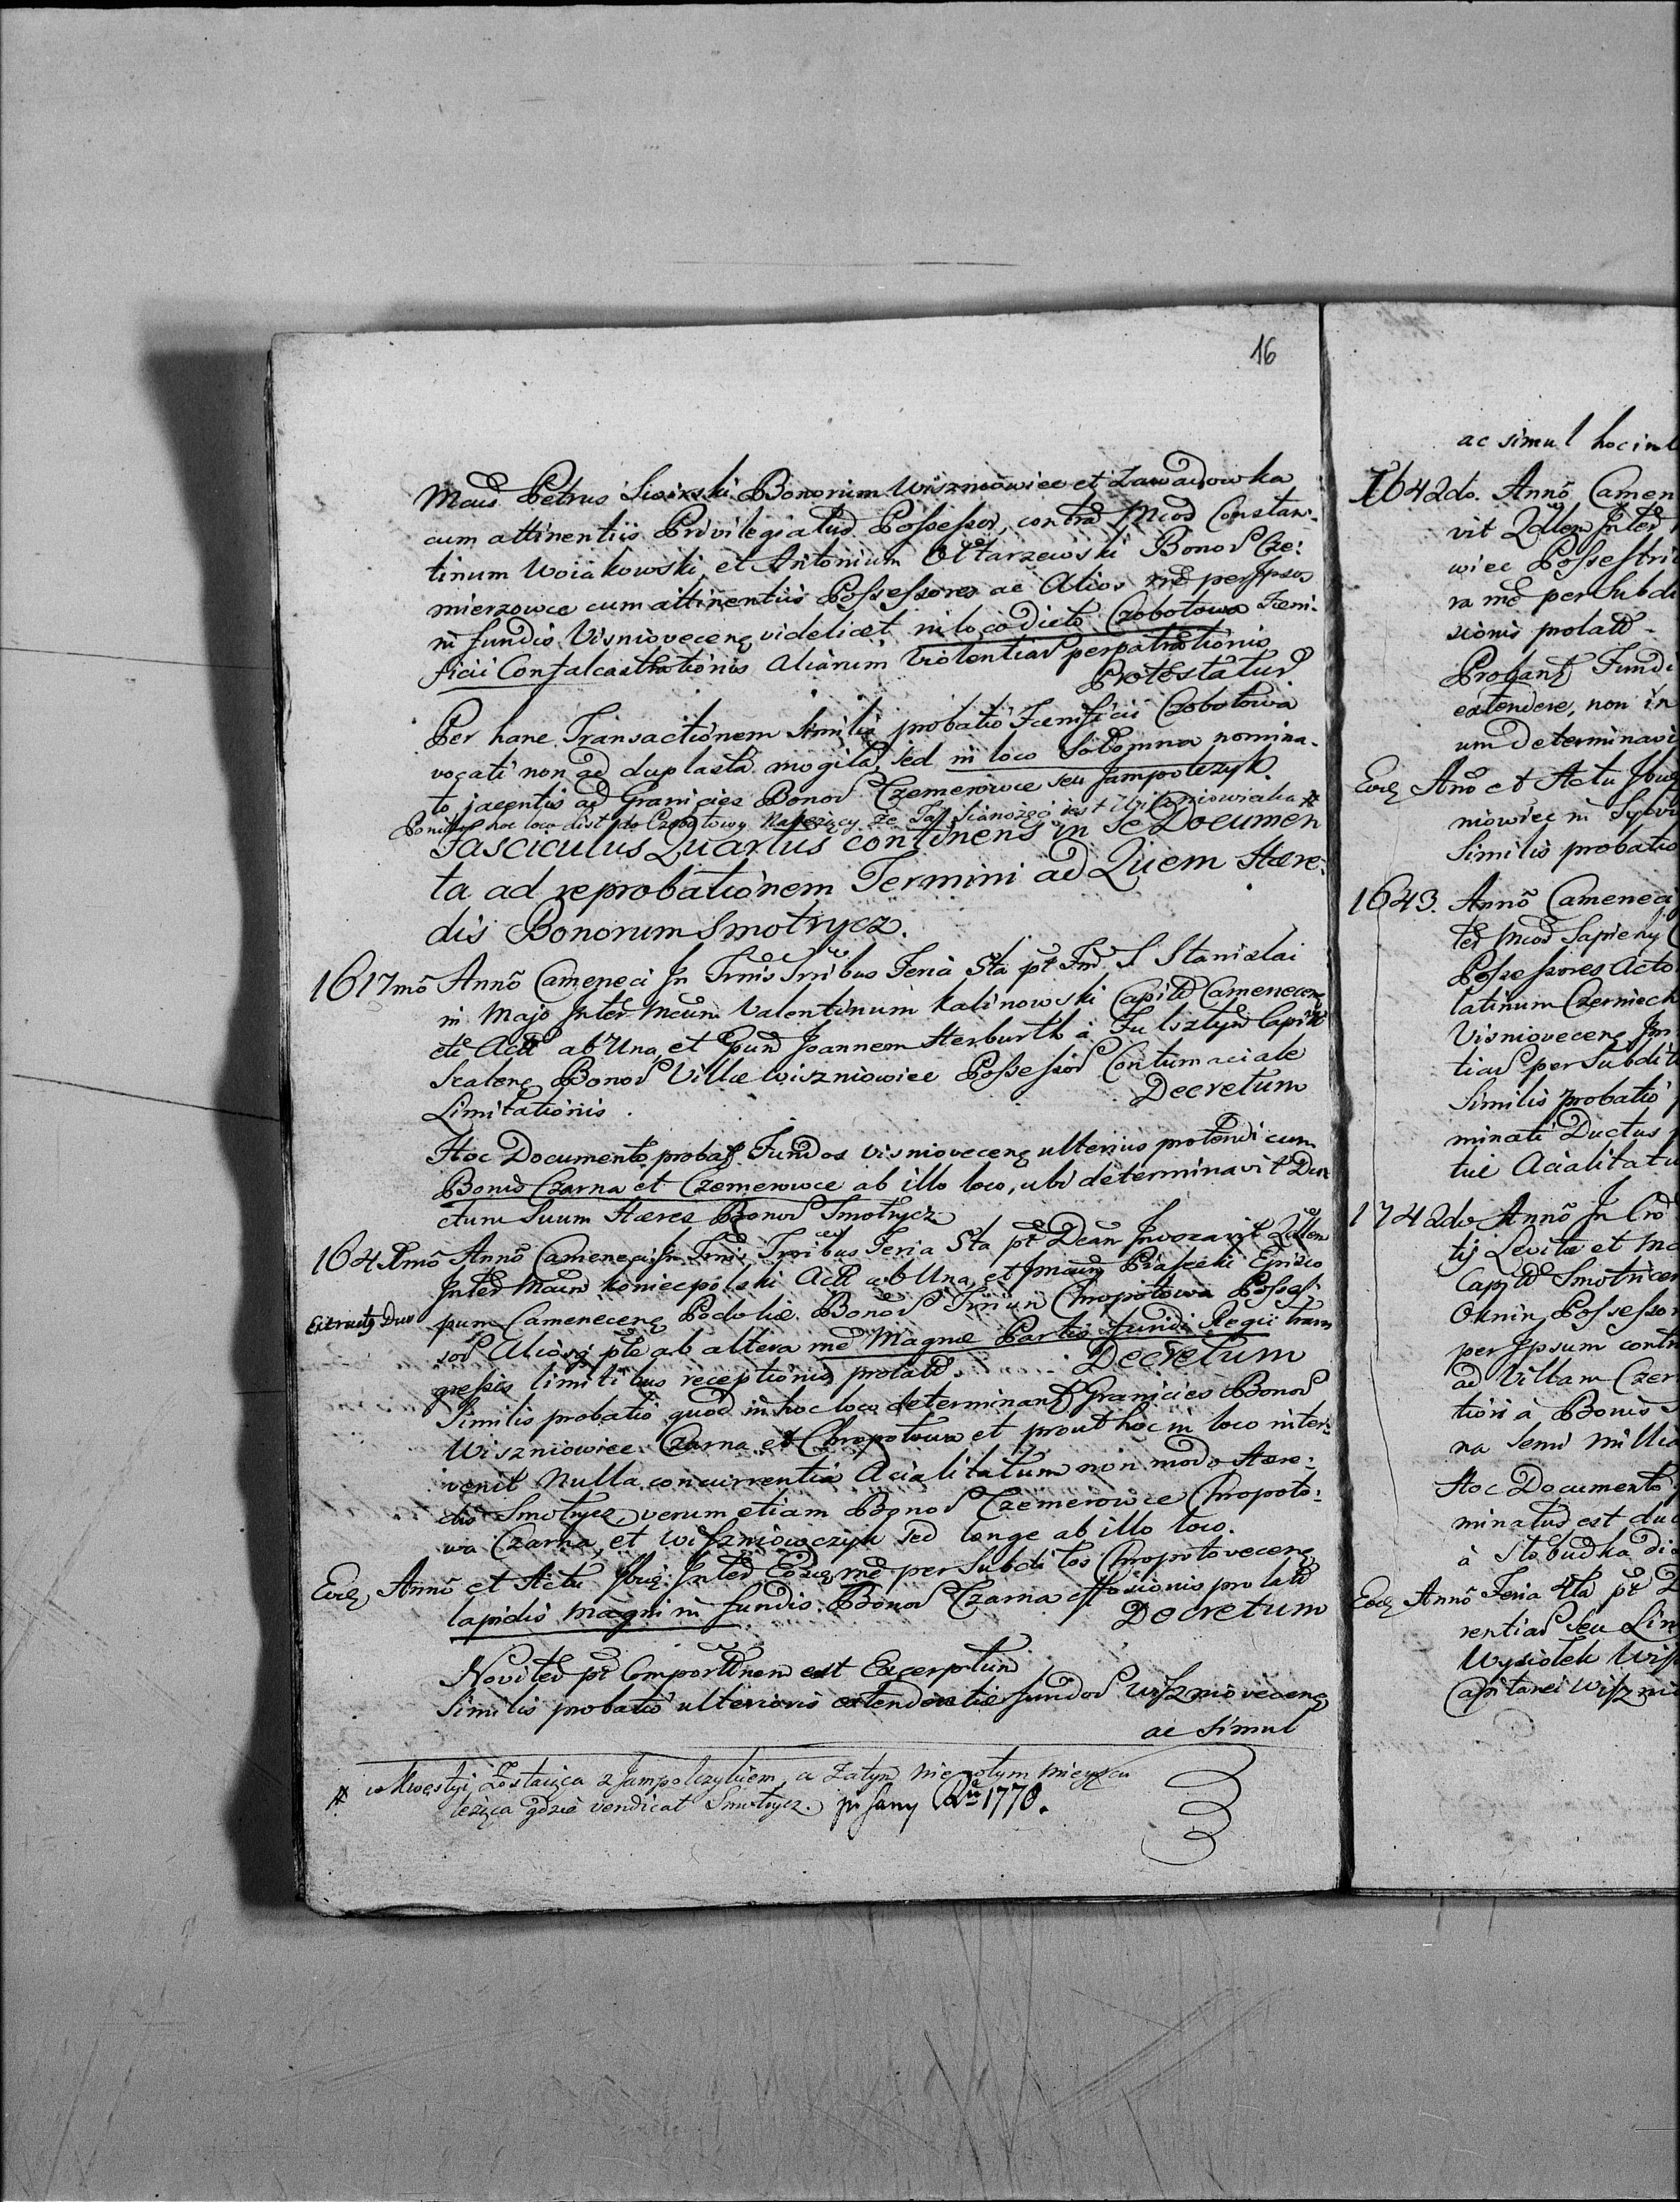 16
Petrus Bonorum Wiszniowiec et Zawadowka
cum attinentiis Privilegiatus Possessor, contra Constan-
tinum Woiakowski et Antonium Ottarzewski Bonor Cze:
mierzowce cum attinentiis Possessores ac Alios rne per Ipsos
in fundis Visniovecens videlicet in loco dicto Czobotowa Faeni-
ficii Confalcastrationis aliarum Violentiar perpatrationis
Protestatur
Per hanc Transactionem similis probatio Faenificii Czobotowa
vocati non ad duplasta mogila, sed in loco nomina-
to jacentis ad Granicies Bonor Czemerowce seu Jampolczyk.
hoc loco list do
Fasciculus Quartus continens in Se Documen
ta ad reprobationem Termini ad Quem Hære-
dis Bonorum Smotrycz.
1617mo Anno Cameneci In Trnis Trribus Feria 5ta pt Fm S Stanislai
in Majo Inter Valentinum Kalinowski Capitt Camenecen
etc Actt ab Una, et Joannem Herburth à Fulsztyn Capitt
Scalens Bonor Villæ Wiszniowiec Possessor Contumaciale
Limitationis. Decretum
Hoc Documento probat Fundos Visniovecens ulterius protendi cum
Bonis Czarna et Czemerowce ab illo loco, ubi determinavit Du
ctum Suum Hæres Bonor Smotrycz
1641mo Anno Cameneci In Trnis Trribus Feria 5ta pt
Inter Koniecpolski Actt ab Una, et Piasecki Episco
Extractus Duo
pum Camenecens Podoliæ Bonor Chropotowa Posses-
sor Aliosq pte ab altera rne Magnæ Partis fundi Regii trans
gressis limitibus receptionis prolatt. Decretum
Similis probatio quod in hoc loco determinant Granicies Bonor
Wiszniowiec Czarna et Chropotowa et prout hoc in loco inter-
venit nulla concurrentia Acialitatum non modo Hære:
dis Smotrycz, verum etiam Bonor Czemerowce Chropoto:
wa Czarna, et Wiszniowczyk sed longe ab illo loco.
Eodem Anno et Actu Ibiq Inter Eosq rne per Subditos Chropotovecens
lapidis magni in fundis Bonor Czarna prolatt
Decretum
Noviter pt Comportnem est Excerptum
Similis probatio ulterioris extendentiæ fundor Wiszniovecens
ac simul
# w Kwestyi Zostaiąca z Jampolczykiem, a Zatym nie w tym mieyscu
leżąca gdzie vendicat Smotrycz. pisany 1778.
ac simul hoc in l
1642do. Anno Camen
vit Inter
wiec Possessri
ra rne per Subdi
sionis prolatt -
Probant Fundi
extendere, non in
um Determinavi
Eodem Ano et Actu Ibiq
niowiec in Sylvi
Similis probatio
1643. Anno Cameneci
ter Sapieny
Possessores Acto
latinum Czerniech
Visniovecens
tiar per Subdit
Similis probatio
minati Ductus
tui Acialitatu
1742do Anno In
tij Levitæ et
Capitt Smotricen
Oknin Possessor
per Ipsum contr
ad Villam Czer
tion à Bonis S
na semi millia
Hoc Documento
minatus est duc
à Slobudka di
Eodem Anno Feria 4ta pt
rentiar seu Lin
Wysiolek Wisz
Capitanei Wiszni